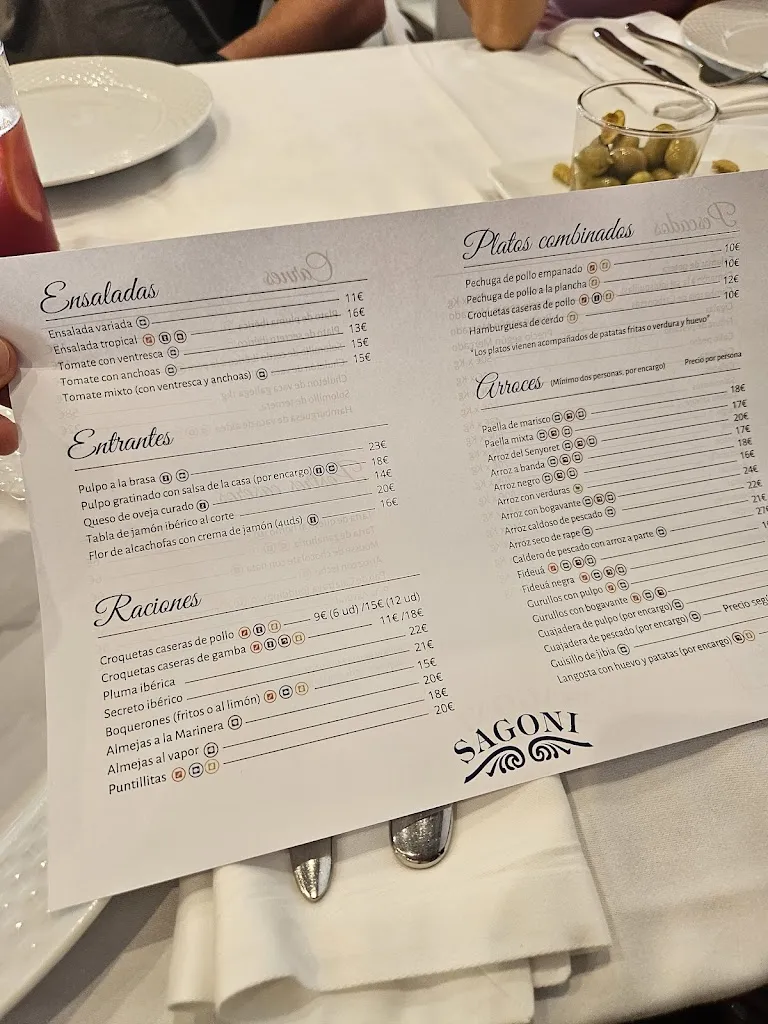 Ensaladas
Ensalada variada 11€
Ensalada tropical 16€
Tomate con ventresca 13€
Tomate con anchoas 15€
Tomate mixto (con ventresca y anchoas) 15€
Entrantes
Pulpo a la brasa 23€
Pulpo gratinado con salsa de la casa (por encargo) 18€
Queso de oveja curado 14€
Tabla de jamón ibérico al corte 20€
Flor de alcachofas con crema de jamón (4uds) 16€
Raciones
Croquetas caseras de pollo 9€ (6 ud) /15€ (12 ud)
Croquetas caseras de gamba 11€ /18€
Pluma ibérica 22€
Secreto ibérico 21€
Boquerones (fritos o al limón) 15€
Almejas a la Marinera 20€
Almejas al vapor 18€
Puntillitas 20€
Platos combinados
Pechuga de pollo empanado 10€
Pechuga de pollo a la plancha 10€
Croquetas caseras de pollo 12€
Hamburguesa de cerdo 10€
*Los platos vienen acompañados de patatas fritas o verdura y huevo*
Arroces (Mínimo dos personas, por encargo) Precio por persona
Paella de marisco 18€
Paella mixta 17€
Arroz del Senyoret 20€
Arroz a banda 17€
Arroz negro 18€
Arroz con verduras 16€
Arroz con bogavante 24€
Arroz caldoso de pescado 22€
Arroz seco de rape 21€
Caldero de pescado con arroz a parte
Fideuá
Fideuá negra
Gurullos con pulpo
Gurullos con bogavante
Cuajadera de pulpo (por encargo)
Cuajadera de pescado (por encargo) Precio segú
Guisillo de jibia
Langosta con huevo y patatas (por encargo)
SAGONI